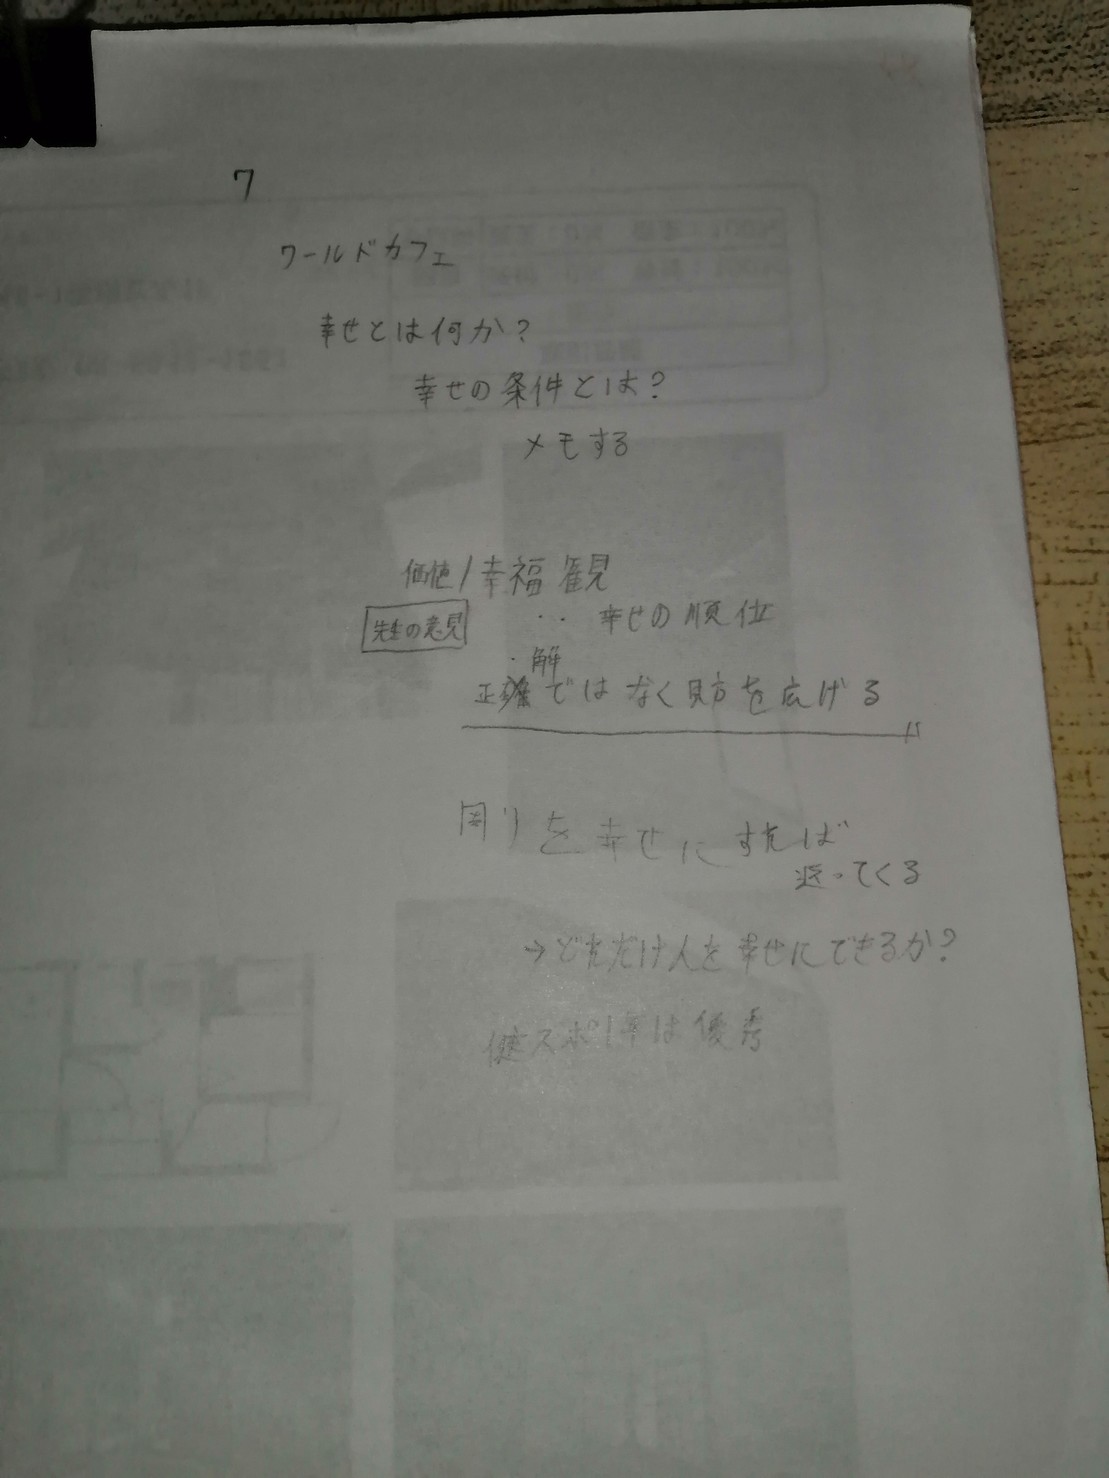 7
ワールドカフェ
幸せとは何か？
幸せの条件とは？
メモする
価値/幸福観
先生の意見
‥ 幸せの順位
解
正確ではなく見方を広げる
周りを幸せにすれば
返ってくる
→どれだけ人を幸せにできるか？
健スポ1年は優秀